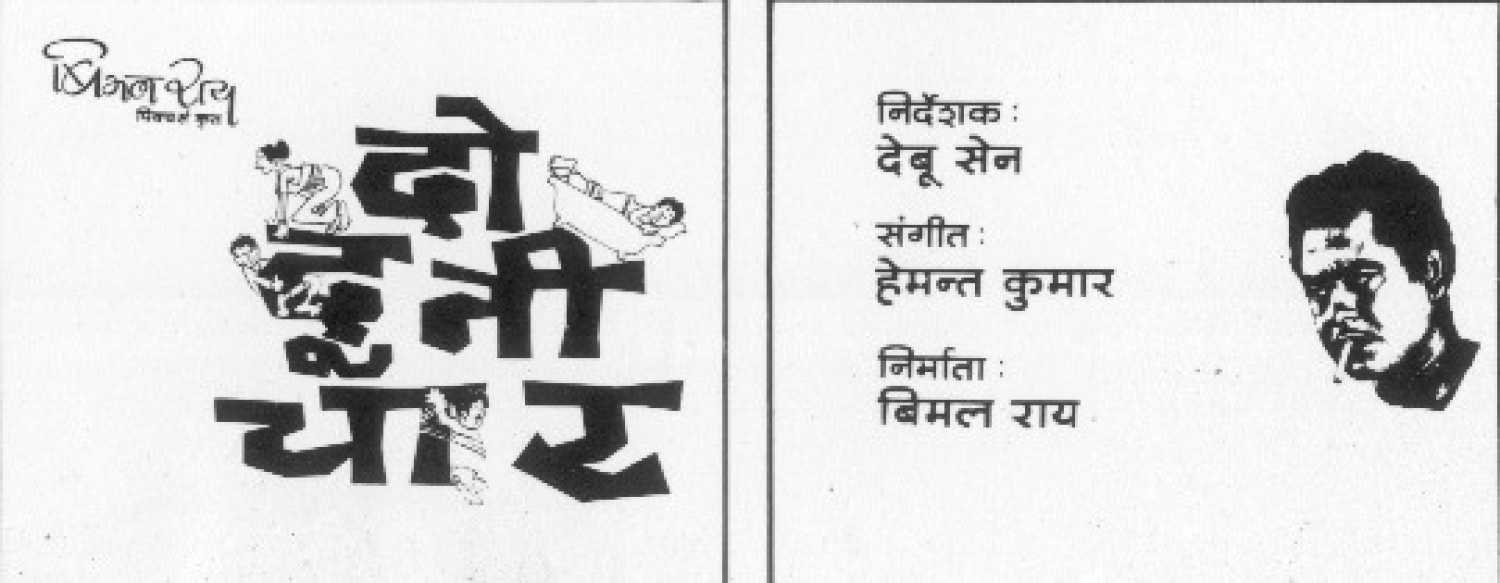 बिमल राय
पिक्चर्स कृत
दो
दूनी
चार
निर्देशक :
देबू सेन
संगीत :
हेमन्त कुमार
निर्माता :
बिमल राय